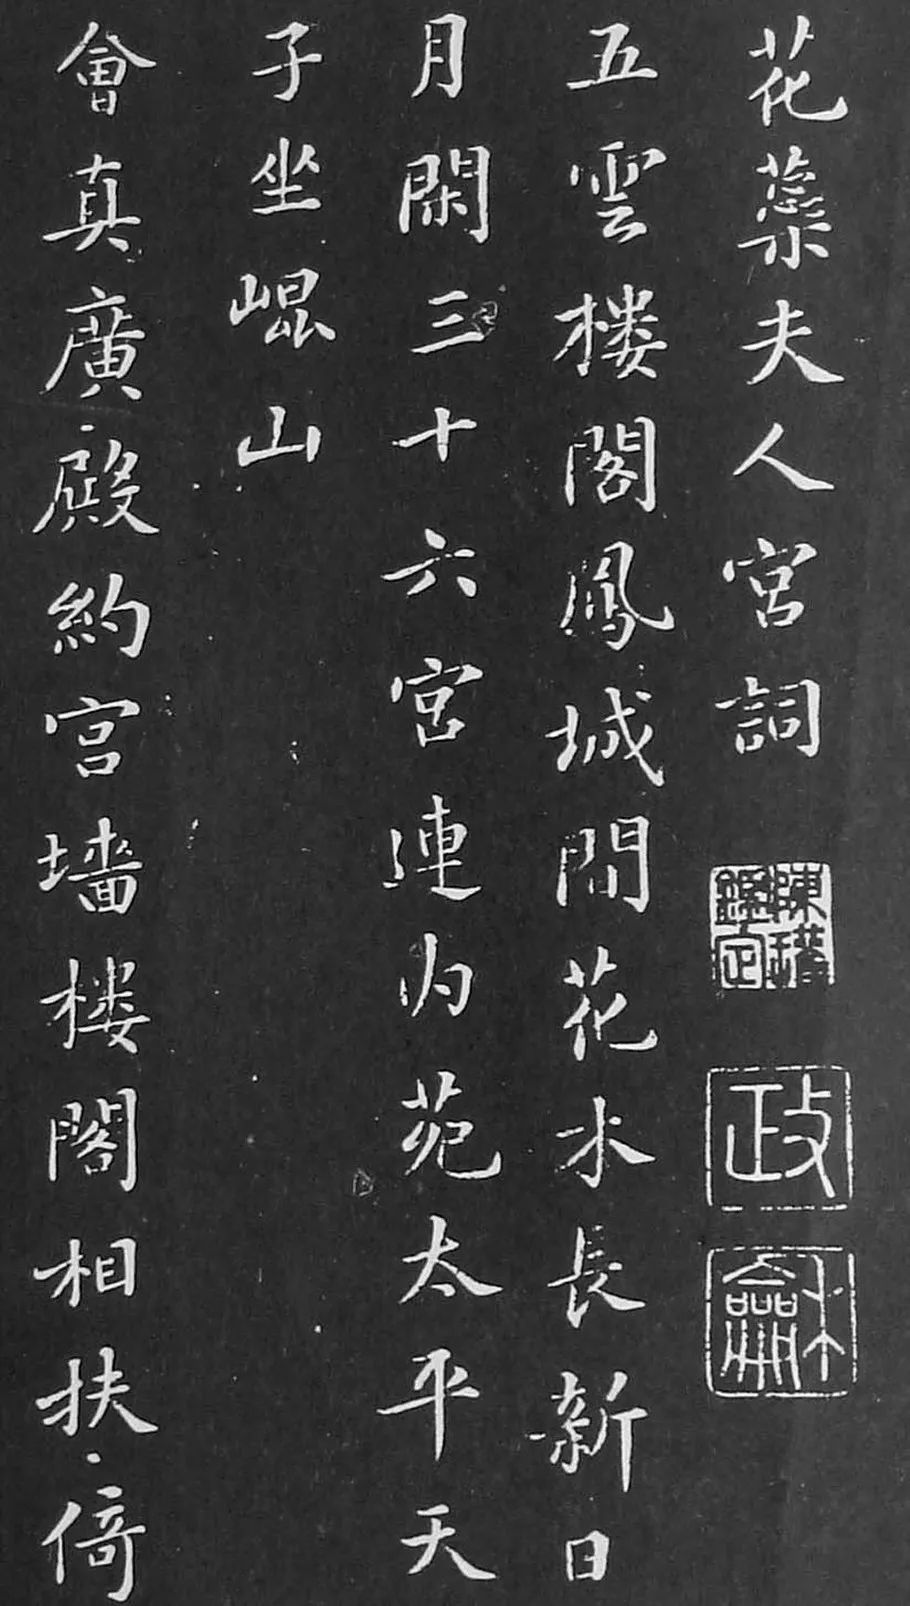 花蕊夫人宮詞
五雲樓閣鳳城間花木長新日
月閑三十六宮連内苑太平天
子坐崐山
會真廣殿約宮墻樓閣相扶倚
政
龢